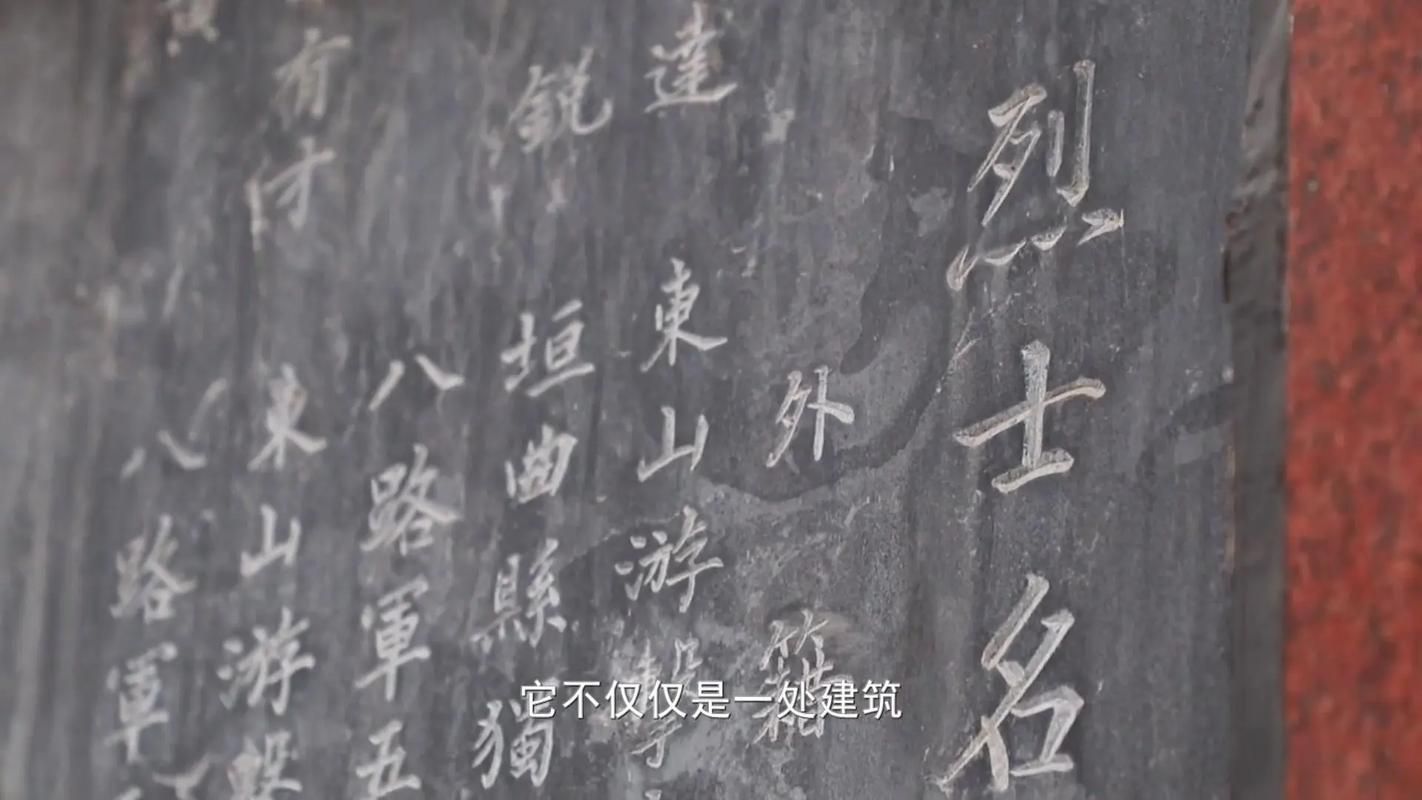 烈士名
外籍
達 東山游擊
鋭 垣曲縣獨
八路軍五
有才 東山游擊
八路軍
它不仅仅是一处建筑